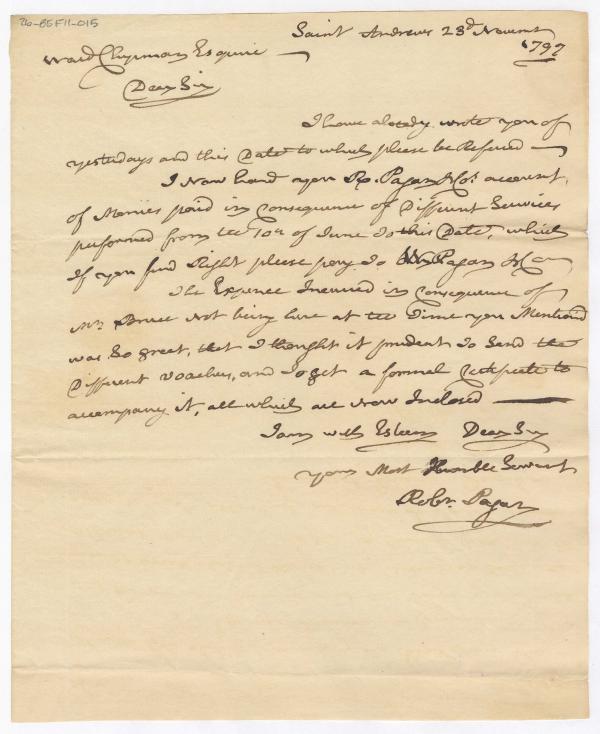 26-B6F11-015
Saint Andrews 23d Novemr
1797
Ward Chipman Esquire
Dear Sir
I have already wrote you of
yesterdays and this Date to which please be Refered
I now hand you Ro. Pagan & Co. account,
of Monies paid in Consequence of Different Services
performed from the 10th of June to this Date, which
If you find Right please pay to Wm Pagan & Co
The Expence Incurred in Consequence of
Mr. Bruce Not being here at the Time you Mentiond
was So great, that I thought it prudent to Send the
Different Vouchers, and to get a formal Certificate to
accompany it, all which are Now Inclosed
I am with Esteem Dear Sir
your Most Humble Servant
Robt. Pagan